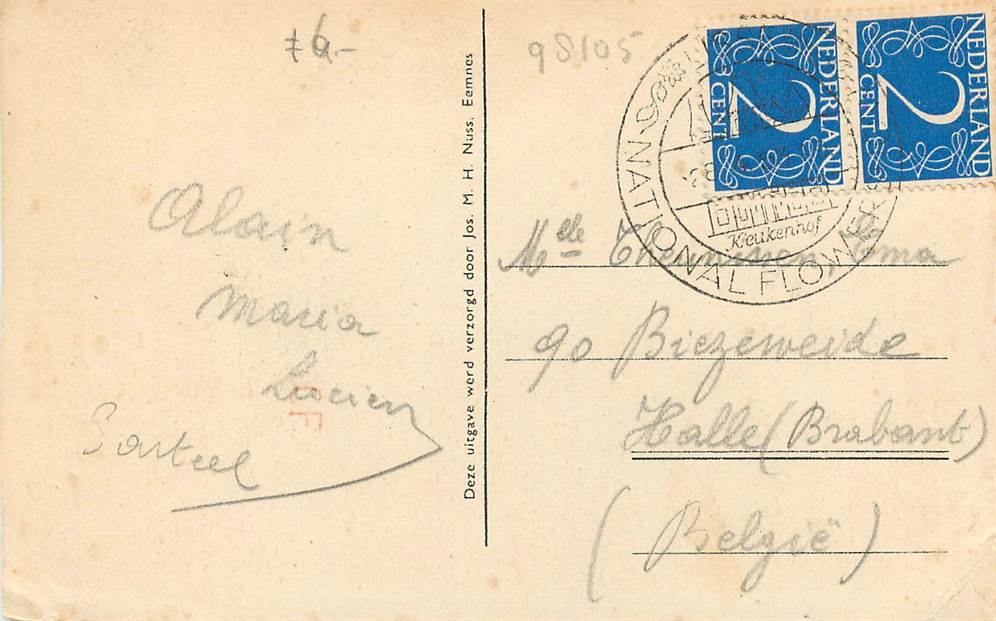 76,-
Alain
Maria
Lucien
Sarteel
Deze uitgave werd verzorgd door Jos. M. H. Nuss, Eemnes
98/05
NEDERLAND
2
CENT
NEDERLAND
2
CENT
NATIONAL FLOWER
Keukenhof
Melle Theunissen, Irma
90 Biezeweide
Halle (Brabant)
(België)